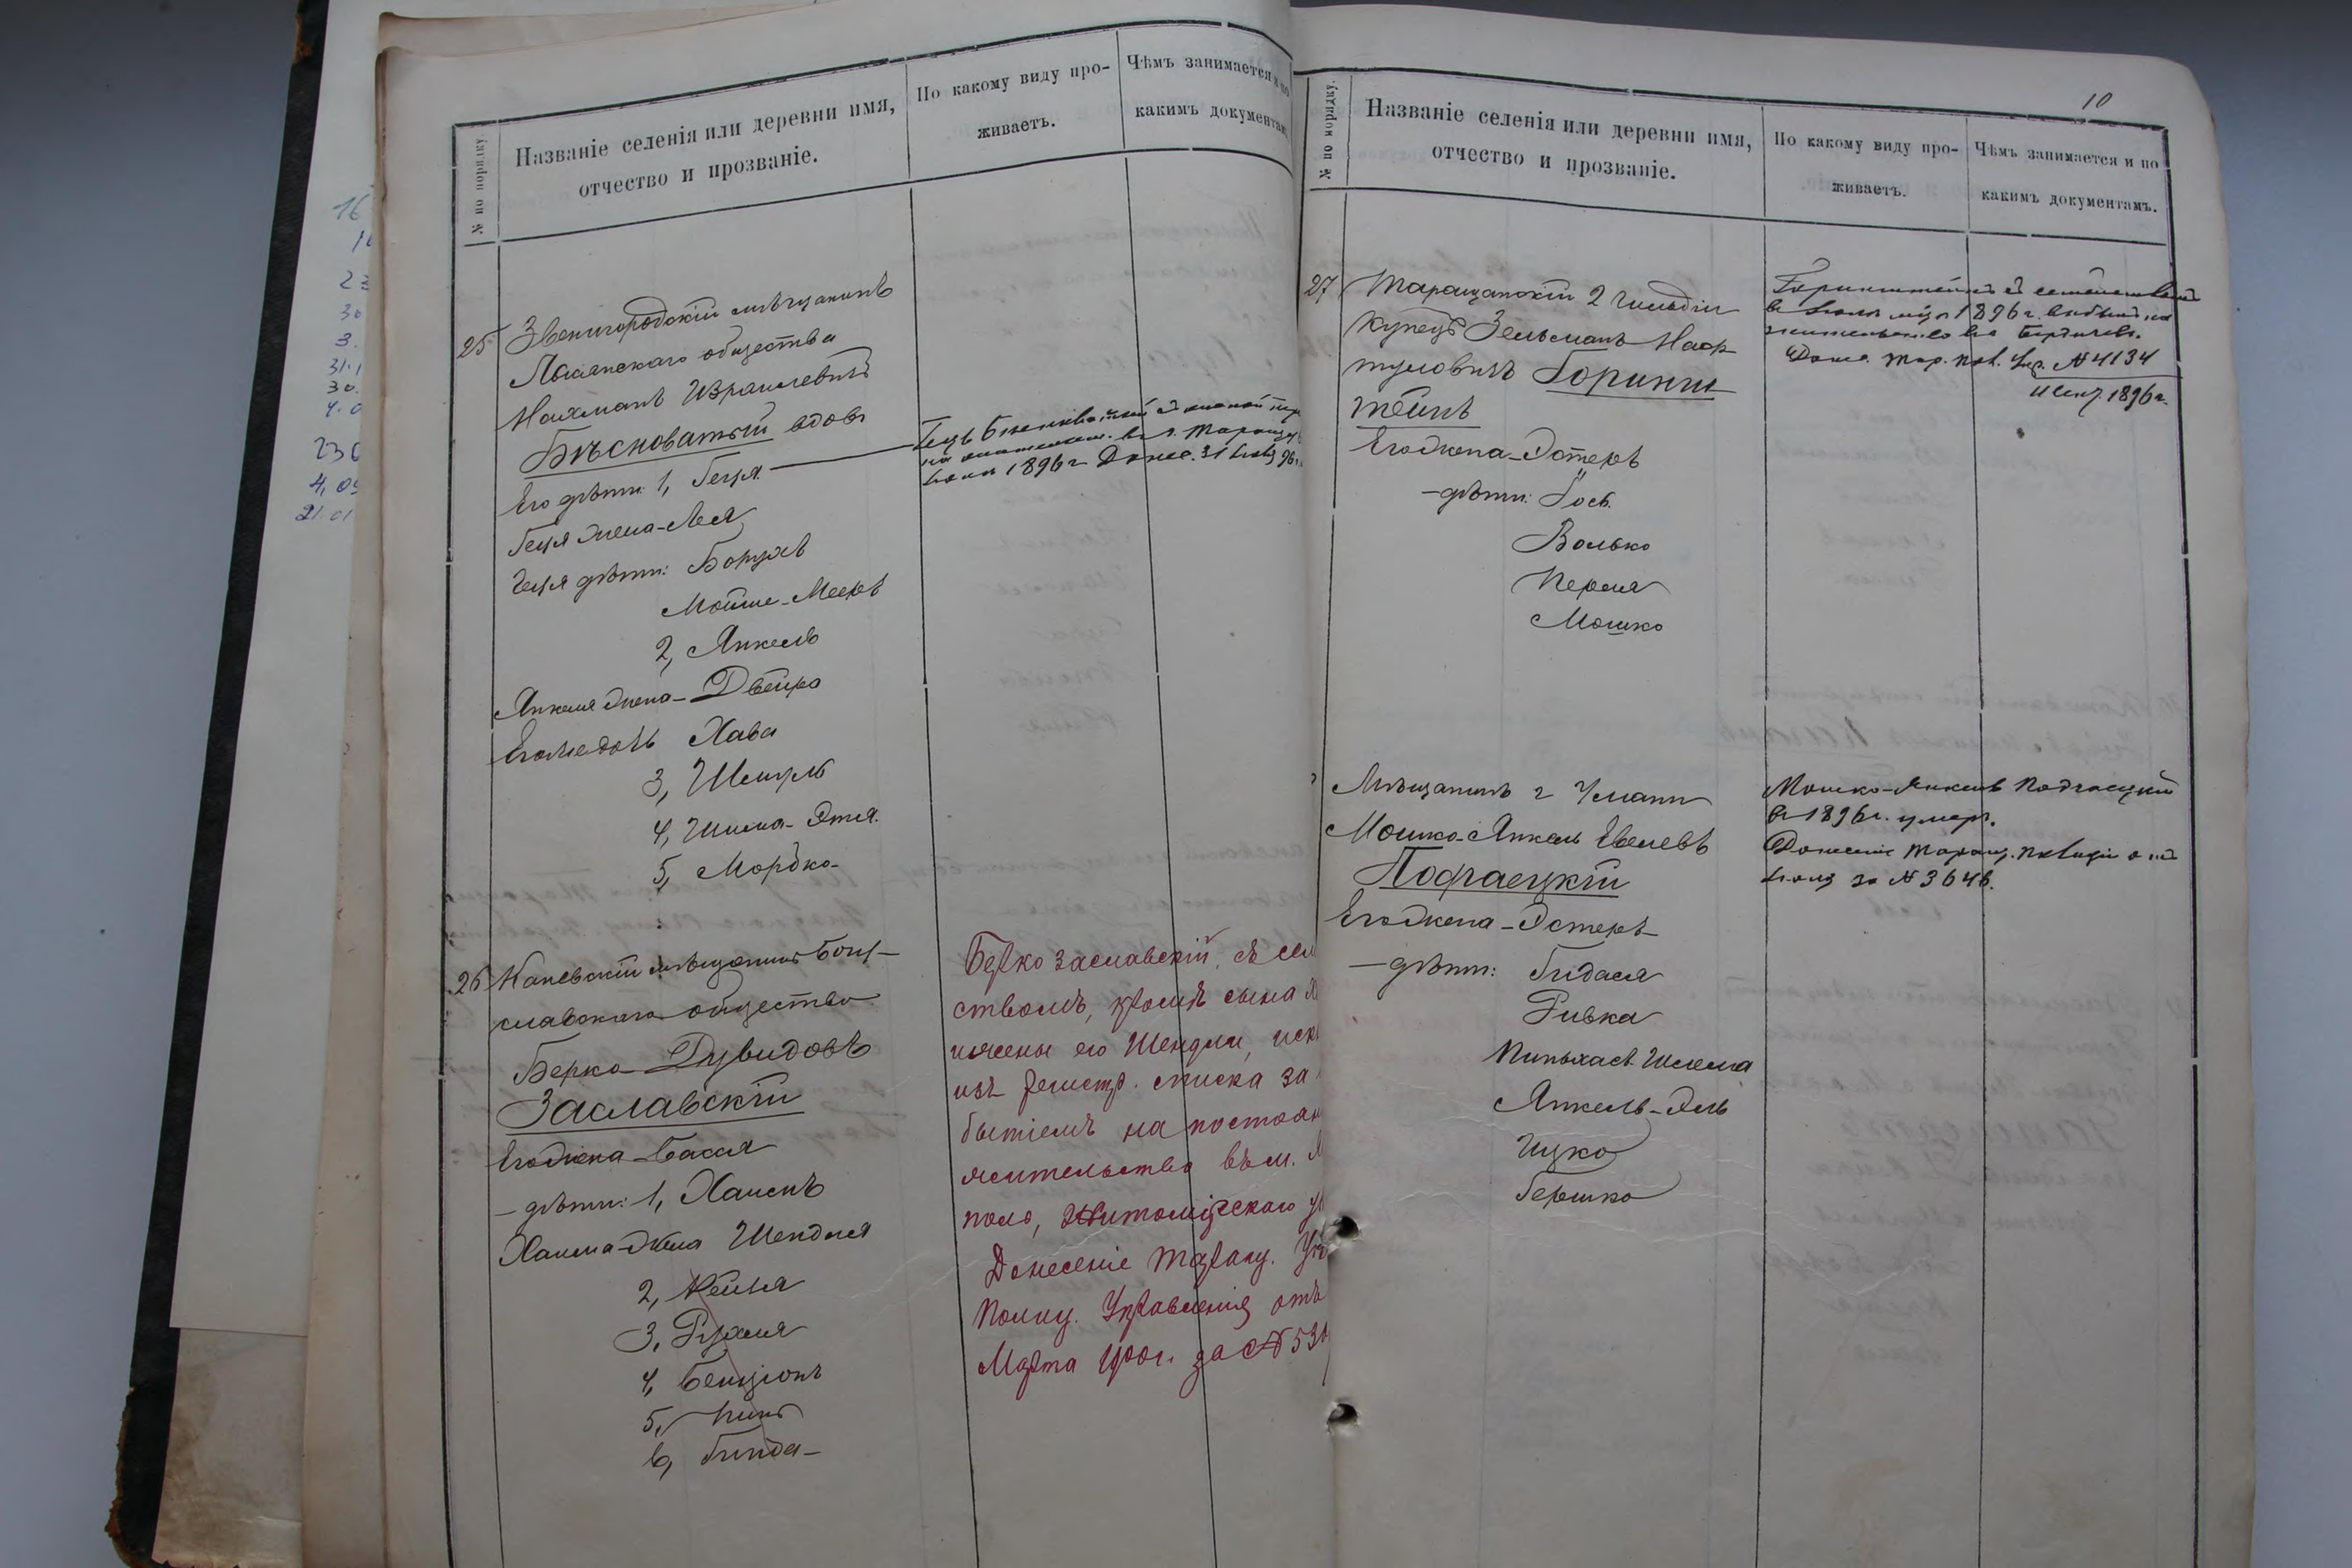 № по порядку.
Названіе селенія или деревни имя,
отчество и прозваніе.
По какому виду про-
живаетъ.
Чѣмъ занимается и по
какимъ документамъ
25 Звенигородскій мѣщанинъ
Лысянскаго общества
Нахманъ Израилевичъ
Бѣсноватый вдовъ
Его дѣти: 1, Геця
Геця жена - Лея
Геця дѣти: Борухъ
Мойше-Мееръ
2, Янкель
Янкеля жена - Двейра
Его же дочь Хава
3, Шмуль
4, Шима-Этля
5, Мордко-
на жительс. въ г. Таращу
1896 г. Донес. 31
26 Каневскій мѣщанинъ Богу-
славскаго общества
Берко Дувидовъ
Заславскій
Его жена - Бася
- дѣти: 1, Хаимъ
Хаима жена Шендля
2, Рейзя
3, Рухля
4, Бенціонъ
5,
6, Гинда-
Берко Заславскій, съ сем
ствомъ, кромѣ сына Х
и жены его Шендли, искл
изъ регистр. списка за
бытіемъ на постоян
жительство въ м.
поль, Житомірскаго у
Донесеніе Таращ. Уѣ
Полиц. Управленія отъ
Марта 1900 г. за № 530
10
№ по порядку.
Названіе селенія или деревни имя,
отчество и прозваніе.
По какому виду про-
живаетъ.
Чѣмъ занимается и по
какимъ документамъ.
27 Таращанскій 2 гильдіи
Купецъ Зельманъ Нафтуловичъ Горинштейнъ
Его жена - Эстеръ
- дѣти: Іось
Волько
Перля
Мошко
Горинштейнъ съ семействомъ
въ 1896 г. выбылъ на
жительство въ Бердичевъ.
Донес. Тар. пол. Упр. № 4134
11 Сент. 1896 г.
Мѣщанинъ г Умани
Мошко-Янкель Евелевъ
Подгаецкій
Его жена - Эстеръ
- дѣти: Гидаля
Ривка
Пиньхасъ Шлема
Янкель-Эль
Ицко
Гершко
Мошко-Янкель Подгаецкій
въ 1896 г. умеръ.
Донесеніе Таращ. полиціи
за № 3646.